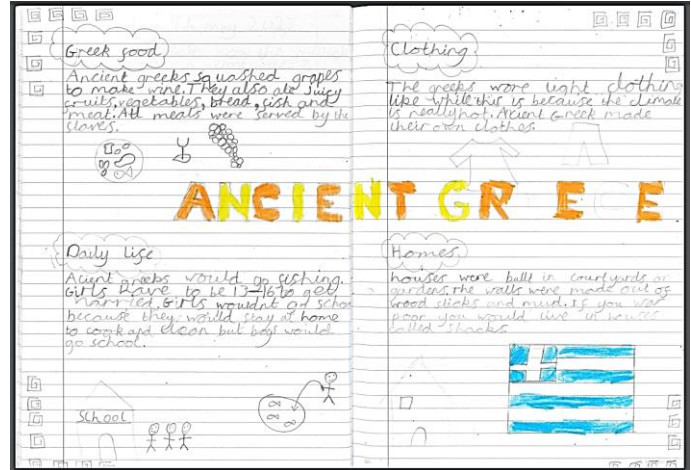 Greek food
Ancient greeks squashed grapes
to make wine. They also ate juicy
fruits, vegetables, bread, fish and
meat. All meals were served by the
slaves.
Clothing
The greeks wore light clothing
like white this is because the climate
is really hot. Acient Greek made
their own clothes.
ANCIENT GREECE
Daily life
Acient greeks would go fishing.
Girls have to be 13-16 to get
married, Girls wouldnt go school
because they would stay at home
to cook and clean but boys would
go school.
School
Homes
houses were built in courtyards or
gardens, the walls were made out of
wood sticks and mud. If you was
poor you would live in houses
called shacks